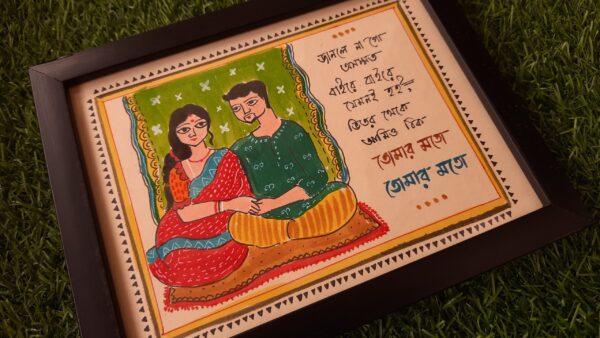 জানলে না গো
বাইরে বাইরে
যেমনই হই,
ভিতর থেকে
আমিও ঠিক
তোমার মতো
তোমার মতো